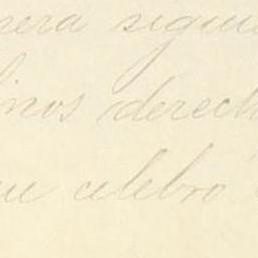 nera sigui
inos derech
ue celebró